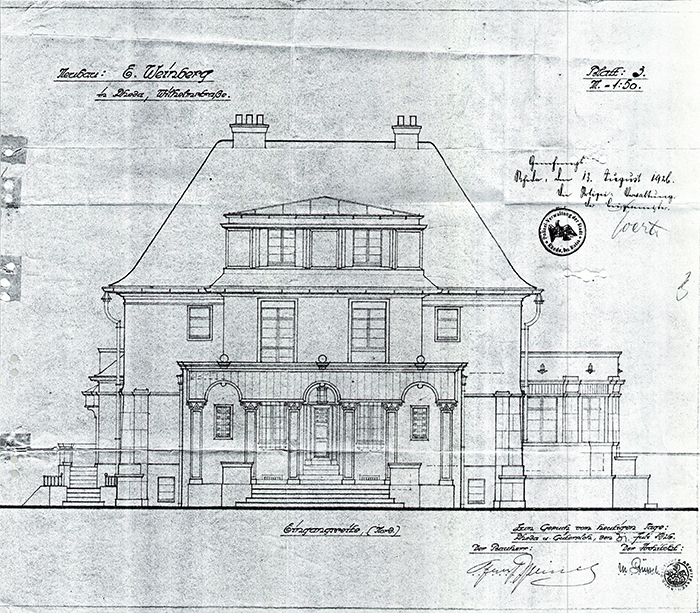 Neubau: E. Weinberg
in Rheda, Wilhelmstraße.
Blatt: 3.
M. - 1:50.
Genehmigt
Rheda, den 17. August 1926.
Die Polizei-Verwaltung
Der Bürgermeister
Polizei-Verwaltung der Stadt Rheda, Bez. Minden
3
Eingangsseite, (Nord.)
Zum Gesuch vom heutigen Tage:
Rheda u. Gütersloh, den Juli 1926.
Der Bauherr: Der Architekt: